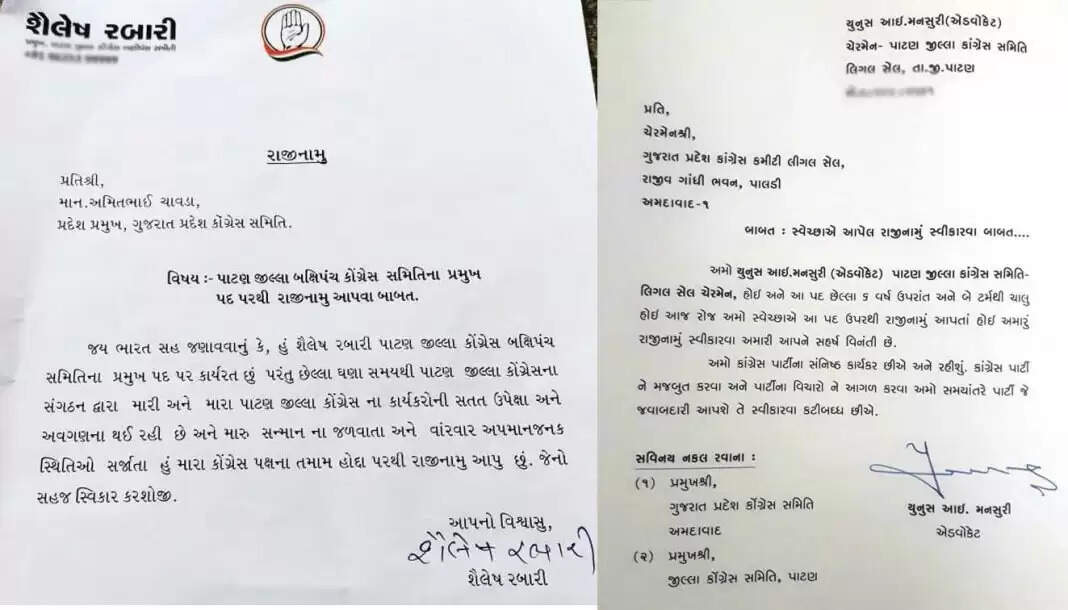 શૈલેષ રબારી
રાજીનામુ
પ્રતિશ્રી,
માન.અમિતભાઈ ચાવડા,
પ્રદેશ પ્રમુખ, ગુજરાત પ્રદેશ કોંગ્રેસ સમિતિ.
વિષય :- પાટણ જીલ્લા બક્ષિપંચ કોંગ્રેસ સમિતિના પ્રમુખ
પદ પરથી રાજીનામુ આપવા બાબત.
જય ભારત સહ જણાવવાનું કે, હું શૈલેષ રબારી પાટણ જીલ્લા કોંગ્રેસ બક્ષિપંચ
સમિતિના પ્રમુખ પદ પર કાર્યરત છું પરંતુ છેલ્લા ઘણા સમયથી પાટણ જીલ્લા કોંગ્રેસના
સંગઠન દ્વારા મારી અને મારા પાટણ જીલ્લા કોંગ્રેસ ના કાર્યકરોની સતત ઉપેક્ષા અને
અવગણના થઈ રહી છે અને મારુ સન્માન ના જળવાતા અને વાંરવાર અપમાનજનક
સ્થિતિઓ સર્જાતા હું મારા કોંગ્રેસ પક્ષના તમામ હોદ્દા પરથી રાજીનામુ આપુ છું. જેનો
સહજ સ્વિકાર કરશોજી.
આપનો વિશ્વાસુ,
શૈલેષ રબારી
શૈલેષ રબારી
યુનુસ આઈ.મનસુરી(એડવોકેટ)
ચેરમેન- પાટણ જીલ્લા કાંગ્રેસ સમિતિ
લિગલ સેલ, તા.જી.પાટણ
પ્રતિ,
ચેરમેનશ્રી,
ગુજરાત પ્રદેશ કાંગ્રેસ કમીટી લીગલ સેલ,
રાજીવ ગાંધી ભવન, પાલડી
અમદાવાદ-૧
બાબત : સ્વેચ્છાએ આપેલ રાજીનામું સ્વીકારવા બાબત....
અમો યુનુસ આઈ.મનસુરી (એડવોકેટ) પાટણ જીલ્લા કાંગ્રેસ સમિતિ-
લિગલ સેલ ચેરમેન, હોઈ અને આ પદ છેલ્લા ૬ વર્ષ ઉપરાંત અને બે ટર્મથી ચાલુ
હોઈ આજ રોજ અમો સ્વેચ્છાએ આ પદ ઉપરથી રાજીનામું આપતાં હોઈ અમારું
રાજીનામું સ્વીકારવા અમારી આપને સહર્ષ વિનંતી છે.
અમો કાંગ્રેસ પાર્ટીના સંનિષ્ઠ કાર્યકર છીએ અને રહીશું. કાંગ્રેસ પાર્ટી
ને મજબુત કરવા અને પાર્ટીના વિચારો ને આગળ કરવા અમો સમયાંતરે પાર્ટી જે
જવાબદારી આપશે તે સ્વીકારવા કટીબધ્ધ છીએ.
સવિનય નકલ રવાના :
(૧) પ્રમુખશ્રી,
ગુજરાત પ્રદેશ કોંગ્રેસ સમિતિ
અમદાવાદ
(૨) પ્રમુખશ્રી,
જીલ્લા કોંગ્રેસ સમિતિ, પાટણ
યુનુસ આઈ. મનસુરી
એડવોકેટ